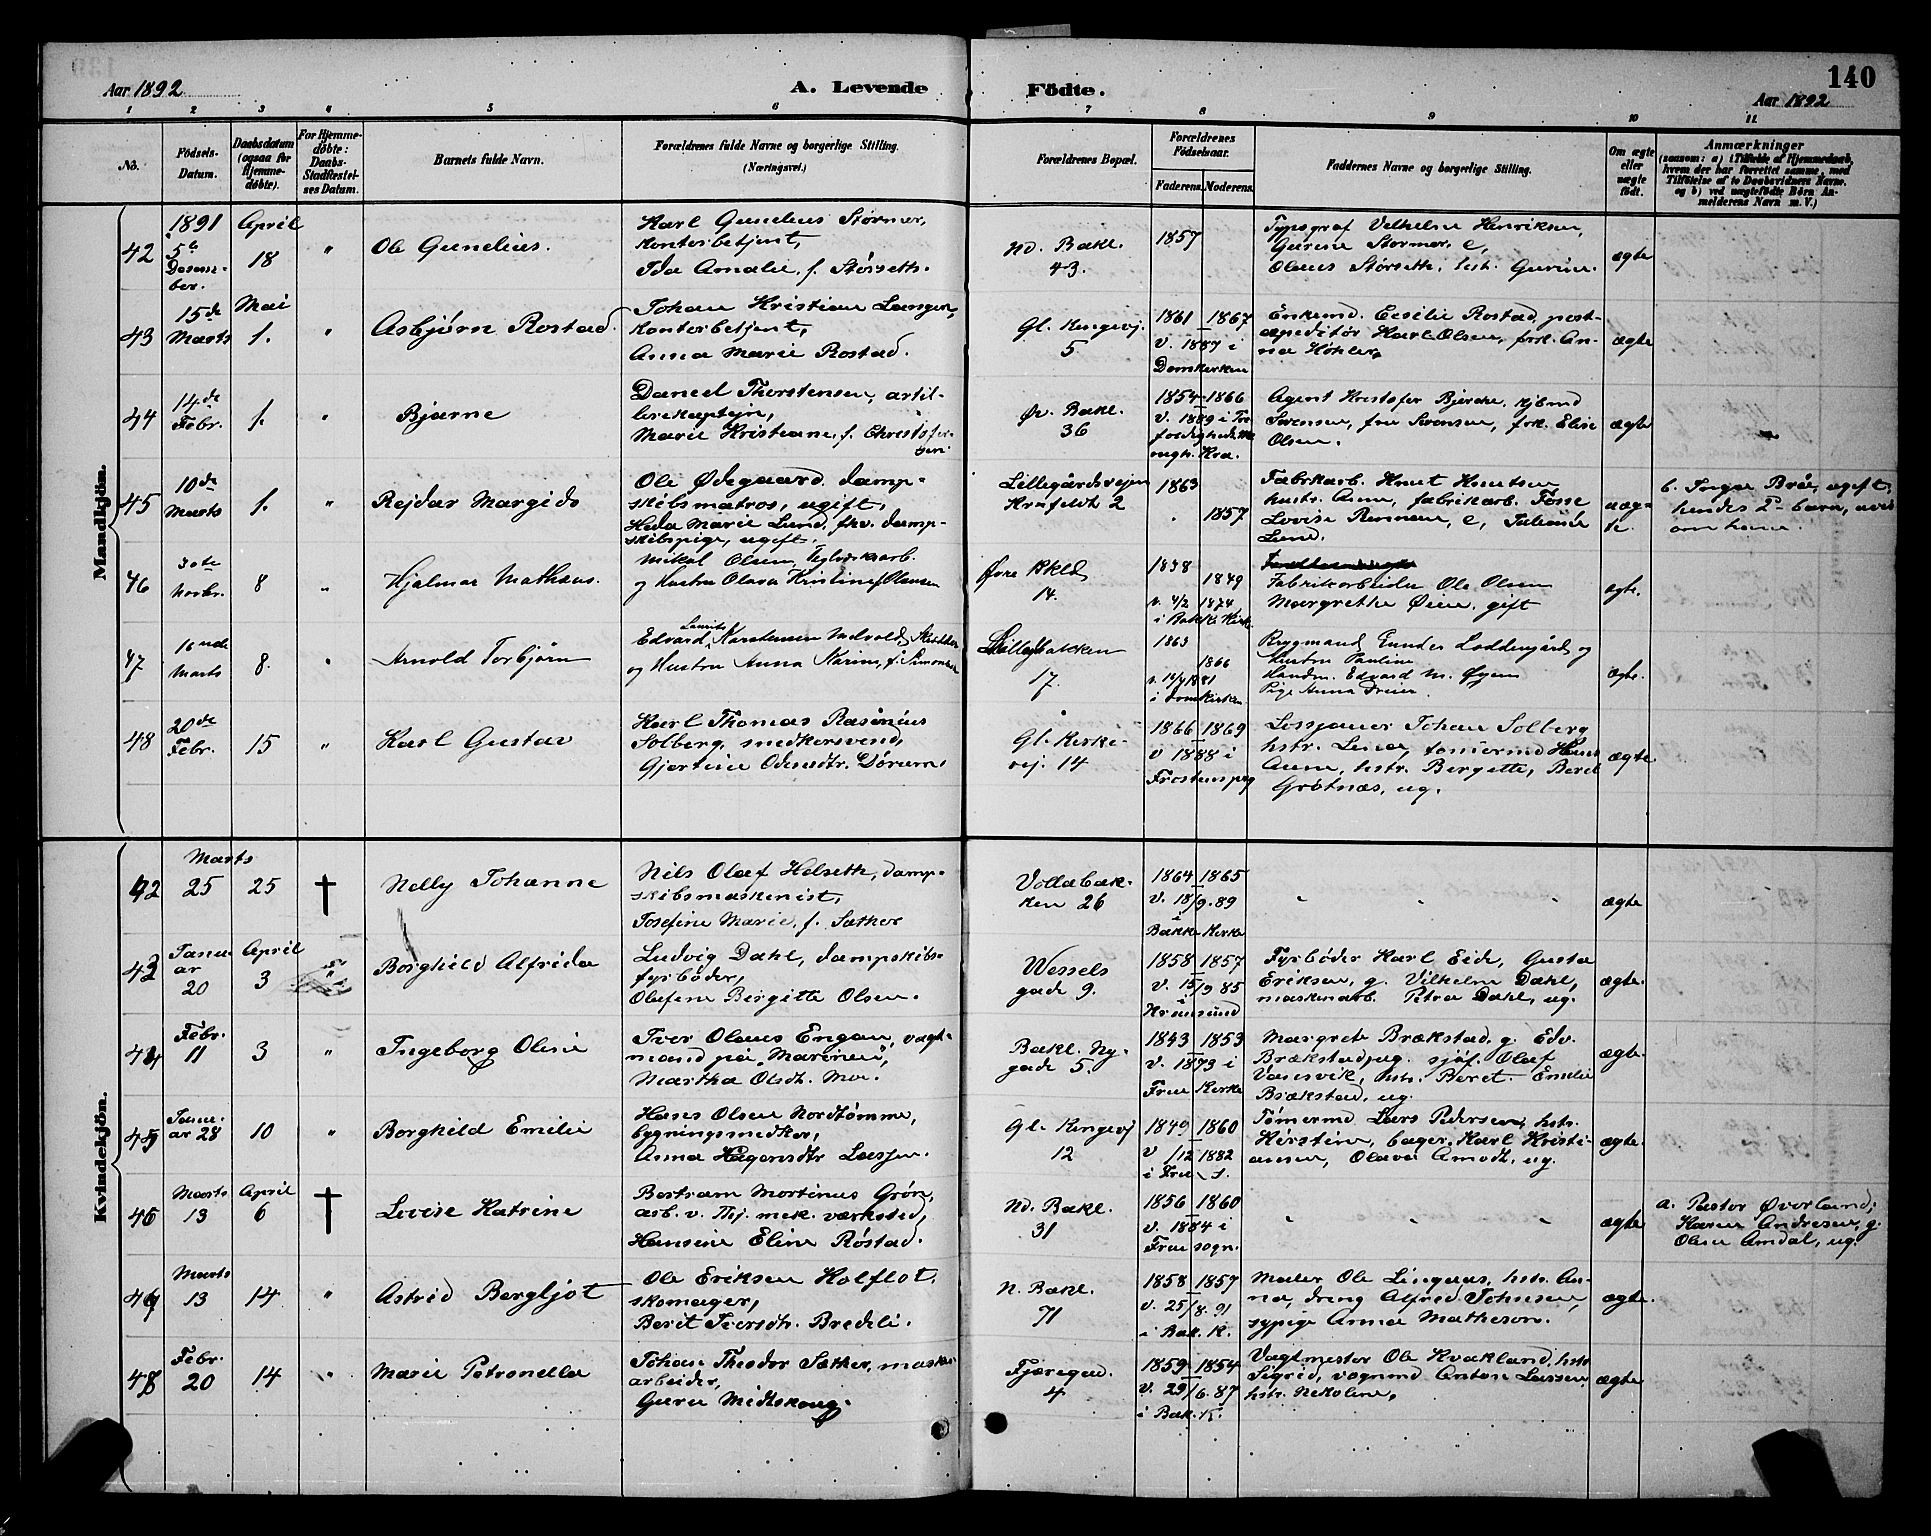 Aar 1892
A. Levende Födte.
140
Aar 1892
1 2 3 4 5 6 7 8 9 10 11
No.
Födsels-
Datum.
Daabsdatum
(ogsaa for
Hjemme-
döbte).
For Hjemme-
döbte:
Daabs-
Stadfæstel-
ses Datum.
Barnets fulde Navn.
Forældrenes fulde Navne og borgerlige Stilling.
(Næringsvei.)
Forældrenes Bopæl.
Forældrenes
Födselsaar.
Faderens. Moderens.
Faddernes Navne og borgerlige Stilling.
Om ægte
eller
uægte
födt.
Anmærkninger
(saasom: a) i Tilfælde af Hjemmedaab,
hvem der har forrettet samme, med
Tilföielse af to Daabsvidners Navne,
og b) ved uægtefödte Börn An-
melderens Navn m. V.)
Mandkjön.
42
1891
5te
Decem-
ber.
April
18
"
Ole Gunelius.
Karl Gunelius Størmer,
kontorbetjent,
Ida Amalie, f. Størseth.
Nd. Bakl.
43.
1857
Typograf Vilhelm Henriksen,
Gurine Størmer, e,
Olaus Størseth, hstr. Gurine.
ægte
43
15de
Marts
Mai
1.
"
Asbjørn Rostad.
Johan Kristian Langen,
kontorbetjent,
Anna Marie Rostad.
Gl. Kongevj.
5.
1861 – 1867
v. 1887 i
Domkirken
Enkemd. Cecilie Rostad, post-
expeditør Karl Olsen, frk. An-
na Høhler,
ægte
44
14de
Febr.
1.
"
Bjarne
Daniel Thorstensen, artil-
lerikaptejn,
Marie Kristiane, f. Christofer-
sen
Øv. Bakl.
36
1854 – 1866
v. 1889 i Tre
foldighedsk.
Kra.
Agent Kristofer Bjerche, kjbmd
Sørensen, fru Sørensen, frk. Elise
Olsen.
ægte
45
10de
Marts
1.
"
Rejdar Margido
Ole Ødegaard, damp-
skibsmatros, ugift,
Heda Marie Lund, fhv. damp-
skibspige, ugift.
Lillegårdsvejen
Krafeldt 2
1863
1857
Fabrikarb. Knut Knutsen
hustr. Anne, fabrikarb. Fosse
Lovise Renmare, e, Juliande
Lund.
uæg-
te.
b. Inger Brå, ugift,
hendes 2de barn,
46
30te
Novbr.
8
"
Hjalmar Mathæus.
Mikal Olsen, Teglværksarb.
og Hustru Olava Kristine f. Olausen
Øvre Bkld
14.
1838
1849
v. 4/2 1874
i Bakke Kirke
Fabrikarbeider Ole Olsen
Margrethe Øien, gift
ægte.
47
16nde
Marts
8.
"
Arnold Torbjørn
Edvard Laurits Karstensen Melvold,
og Hustru Anna Karine, f. Simonsen
Lillegbakken
17.
1863
1866
i Domkirken
Brygmand Gunder Loddengård og
Hustru Pauline
Handm. Edvard M. Øyen
Pige Anna Dreier.
ægte.
48
20de
Febr.
15
"
Karl Gustav
Karl Thomas Rasmus
Solberg, snedkersvend,
Gjertine Odinsdtr. Dørum.
Gl. Kirke-
vej. 14
1866 – 1869
v 1888 i
Frostenspgj
Johan Solberg
hstr. Lina, tømrermd Hans
Aune, hstr. Bergitte, Beret
Grøtnæs, ug.
ægte
Kvindekjön.
42
Marts
25
25
†
Nelly Johanne
Nils Olaf Helseth, damp-
skibsmaskinist,
Josefine Marie, f. Sæther
Vollabak-
ken 26
1864 – 1865
v. 18/9. 89
i
Bakke Kirke
"
"
"
ægte
43
Janu-
ar
20
April
3
"
Borghild Alfrida
Ludvig Dahl, dampskibs-
fyrbøder,
Olufine Birgitte Olsen.
Wessels
gade 9.
1858 – 1857
v. 15/9 85
Kr.sund
Fyrbøder Karl Eide, Gusta
Eriksen, g. Vilhelm Dahl,
maskinarb. Petra Dahl, ug.
ægte.
44
Febr.
11
3
"
Ingeborg Oline
Iver Olaus Engan, vagt-
mand på „Marinen",
Martha Olsdt. Moe.
Bakl. Ny-
gade 5.
1843 – 1853
v. 1873 i
Frue Kirke
Margrete Brækstad, g. Edv.
Brækstad, ug. sjøf. Olaf
Vansvik, hstr. Beret. Emilie
Brækstad, ug.
ægte.
45
Janu-
ar 28
10
"
Borghild Emilie
Hans Olsen Nordtømme,
bygningssnedker,
Anna Hågensdtr Lassen.
Gl. Kongevj
12
1849 – 1860
v /12 1882
i Frue k.
Tømermd Lars Pedersen, hstr.
Kirstine, bager. Karl Kristi-
ansen, Olava Amodt, ug.
ægte.
46
Marts
13
April
6
†
Lovise Katrine
Bertram Mortinus Grøn,
arb. v. Thj. mek. værksted,
Hansine Eline Røstad.
Nd. Bakl.
31
1856 – 1860
v. 1884 i
Frue sogn.
"
"
"
ægte
a. Pastor Øverland;
Karen Andresen, g.
Oline Amdal, ug.
47
Marts
13
14
"
Astrid Bergljot
Ole Eriksen Holflot,
skomager,
Berit Iversdtr. Bredeli.
N. Bakl.
71
1858 – 1857
v. 25/8. 91
i Bak. K.
Maler Ole Lingaas, hstr. An-
na, dreng Alfred Johnsen,
sypige Anna Matheson.
ægte.
48
Febr.
20
14
"
Marie Petronella
Johan Theodor Sæther, mask.
arbeider,
Guru Midtskoug.
Fjæregad.
4
1859 – 1854
v. 29/6. 87
i Bak. K.
Vagtmester Ole Kvakland, hstr
Sigrid, vognmd Anton Lassen,
hstr. Nekoline,
ægte